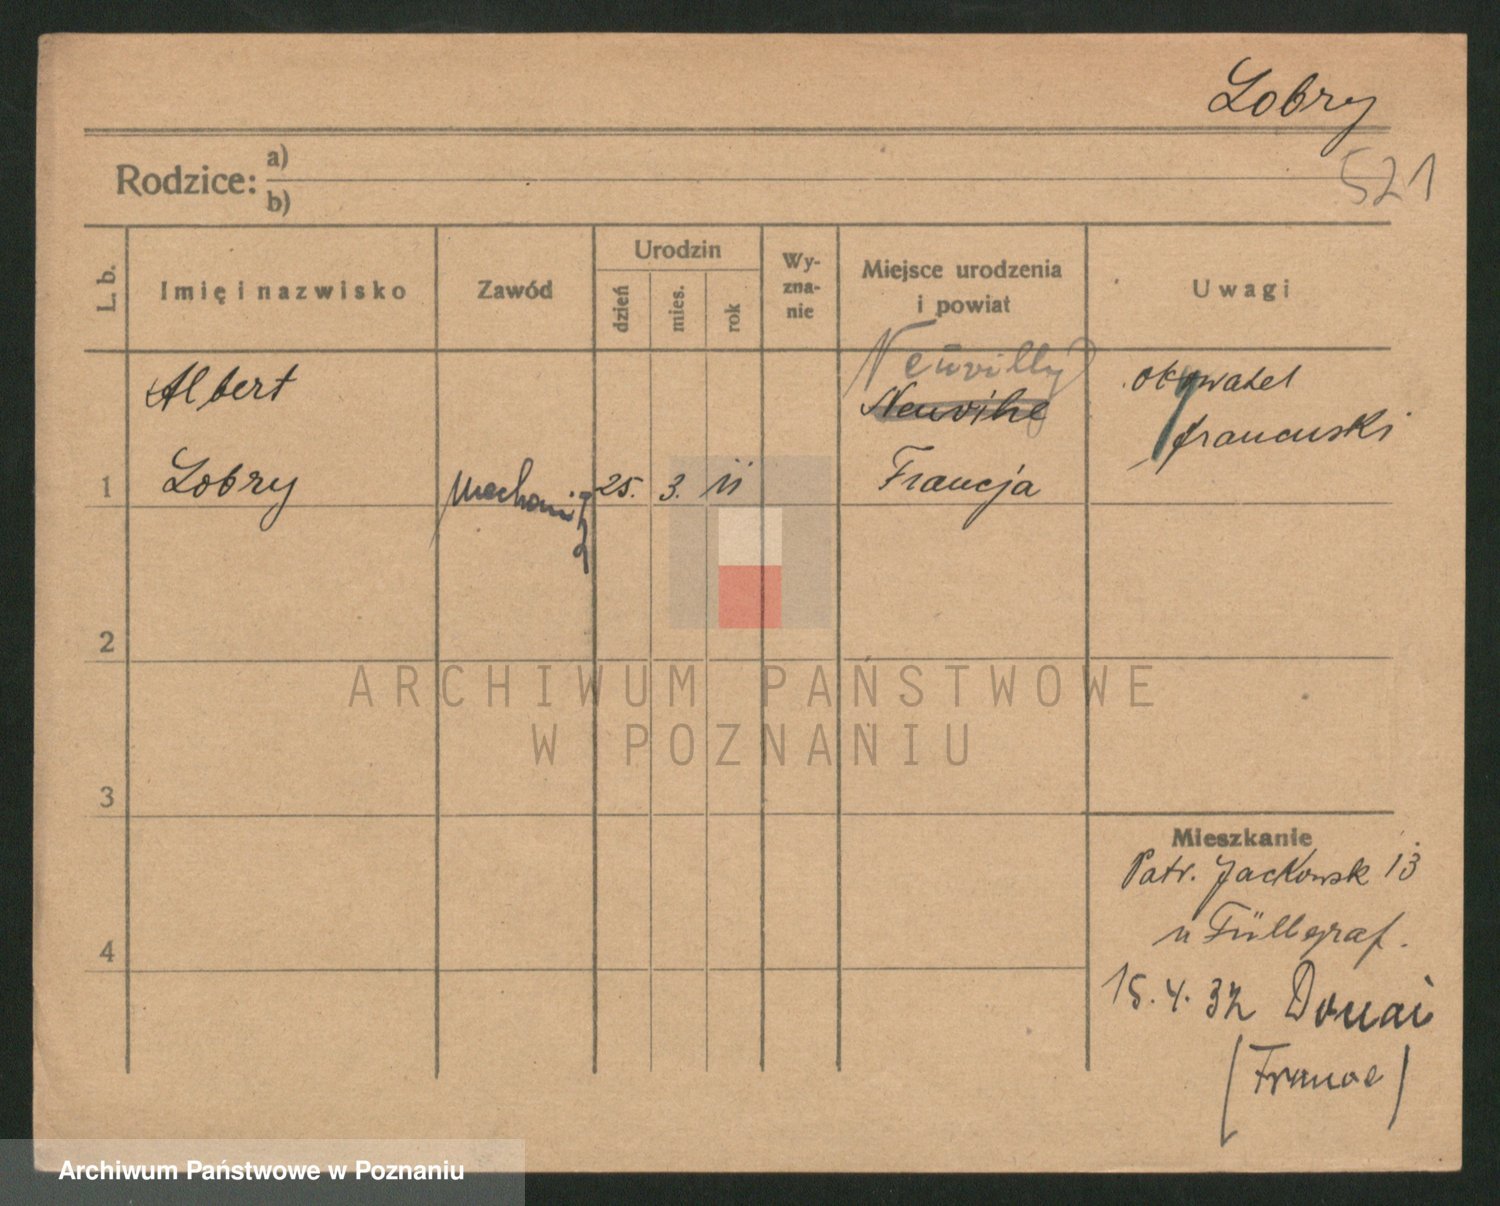 Lobry
521
Rodzice: a)
b)
L. b.
Imię i nazwisko
Zawód
Urodzin
dzień
mies.
rok
Wy-
zna-
nie
Miejsce urodzenia
i powiat
Uwagi
Albert
Neuvilly
obywatel
francuski
1
Lobry
mechanik
25.
3.
11
Francja
2
3
4
ARCHIWUM PAŃSTWOWE
W POZNANIU
Mieszkanie
Patr. Jackowsk 13
u Füllgraf.
15.4.32 Douai
(France)
Archiwum Państwowe w Poznaniu